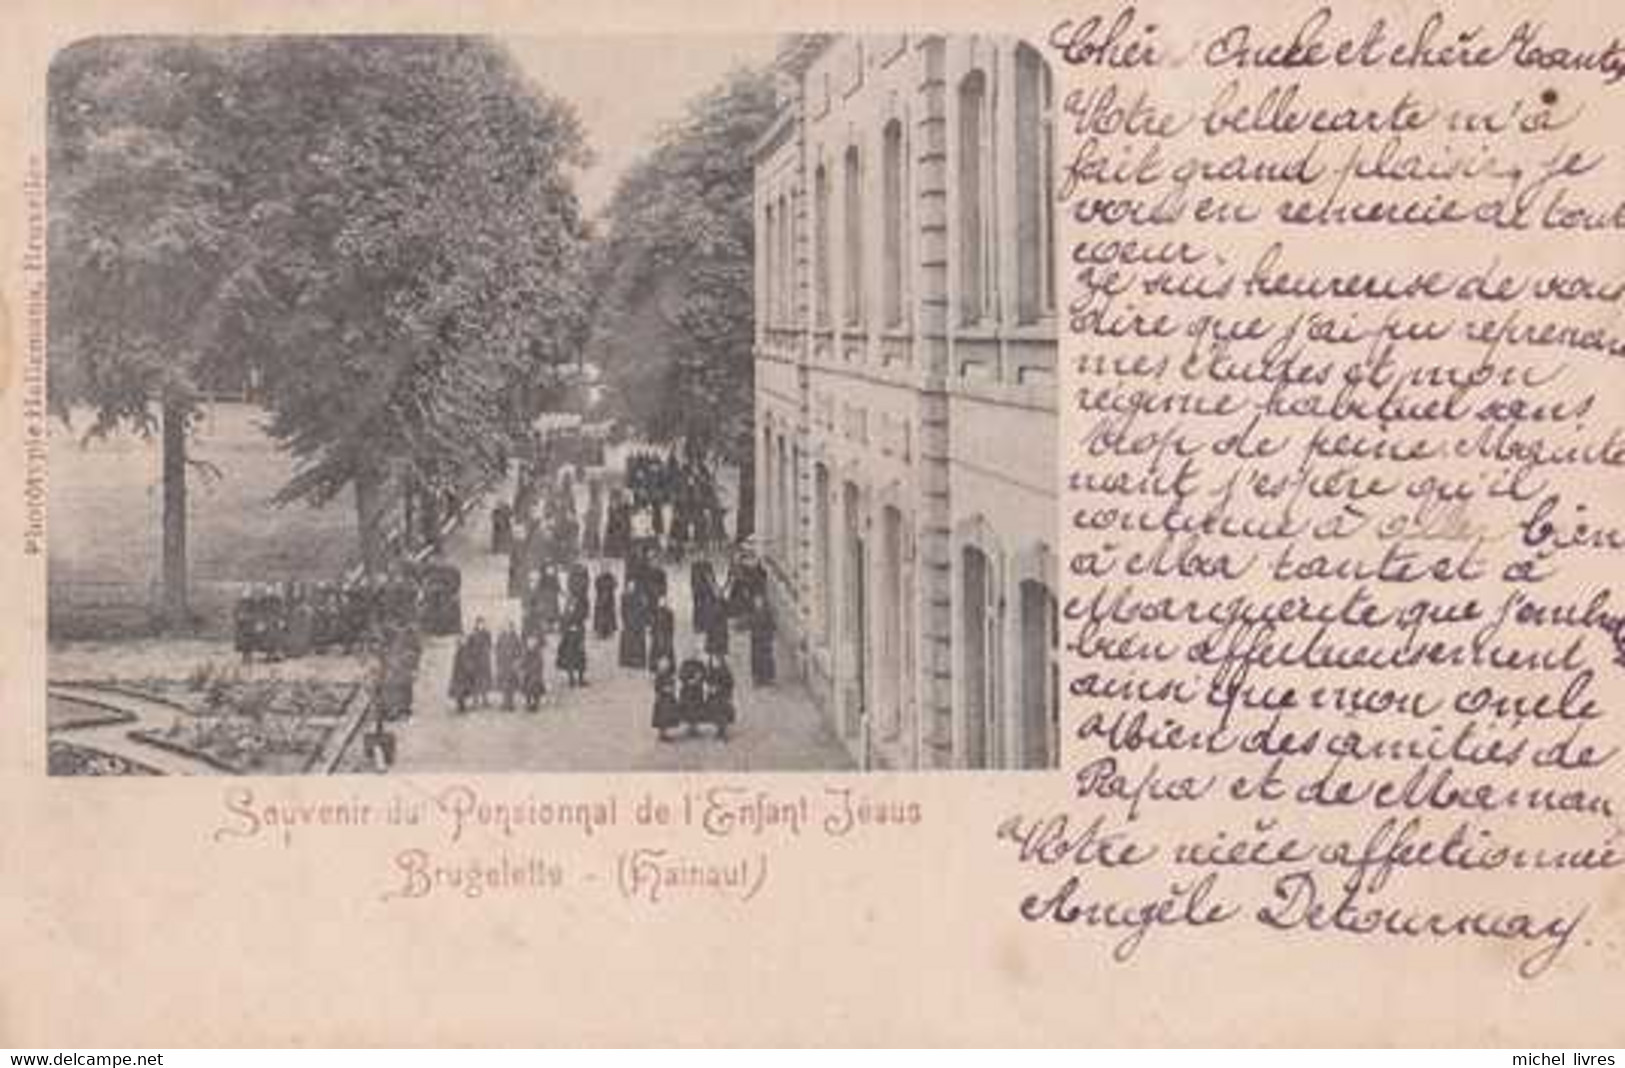 Cher Oncle et chère Tante
Votre belle carte m'a
fait grand plaisir, je
vous en remercie de tout
cœur.
Je suis heureuse de vous
dire que j'ai pu reprendre
mes études et mon
régime habituel sans
trop de peine. Mainte
nant j'espère qu'il
continue à aller bien
à Ma tante et à
Marguerite que j'embrasse
bien affectueusement
ainsi que mon oncle
Bien des amitiés de
Papa et de Maman
Votre nièce affectionnée
Angèle Detournay.
Souvenir du Pensionnat de l'Enfant Jésus
Brugelette - (Hainaut)
Phototypie Bruxelles
www.delcampe.net
michel_livres